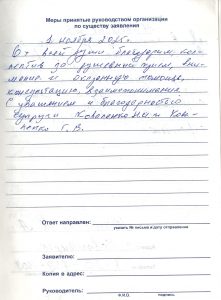 Меры принятые руководством организации
по существу заявления
1 ноября 2025г.
От всей души благодарим кол-
лектив за душевный прием, вни-
мание и оказанную помощь,
консультацию, взаимопонимание
С уважением и благодарностью
супруги Коваленко Н.И. и Кова-
ленко Г.В.
Ответ направлен:
указать № письма и дату отправления
Заявителю:
Копия в адрес:
Руководитель:
Ф.И.О. подпись